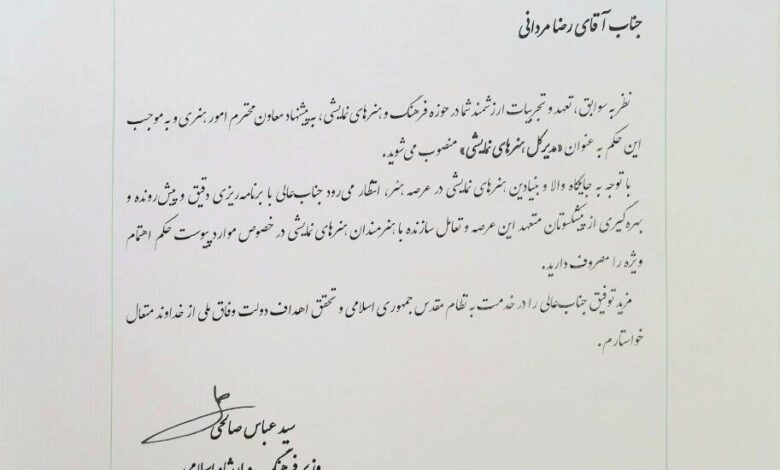 جناب آقای رضا مردانی
نظر به سوابق، تعهد و تجربیات ارزشمند شما در حوزه فرهنگ و هنرهای نمایشی، به پیشنهاد معاون محترم امور هنری و به موجب
این حکم به عنوان «مدیرکل هنرهای نمایشی» منصوب می‌شوید.
با توجه به جایگاه والا و بنیادین هنرهای نمایشی در عرصه هنر، انتظار می‌رود جناب‌عالی با برنامه‌ریزی دقیق و پیش‌رونده و
بهره‌گیری از پیشکسوتان متعهد این عرصه و تعامل سازنده با هنرمندان هنرهای نمایشی در خصوص موارد پیوست حکم اهتمام
ویژه را مصروف دارید.
مزید توفیق جناب‌عالی را در خدمت به نظام مقدس جمهوری اسلامی و تحقق اهداف دولت وفاق ملی از خداوند متعال
خواستارم.
سید عباس صالحی
وزیر فرهنگ و ارشاد اسلامی